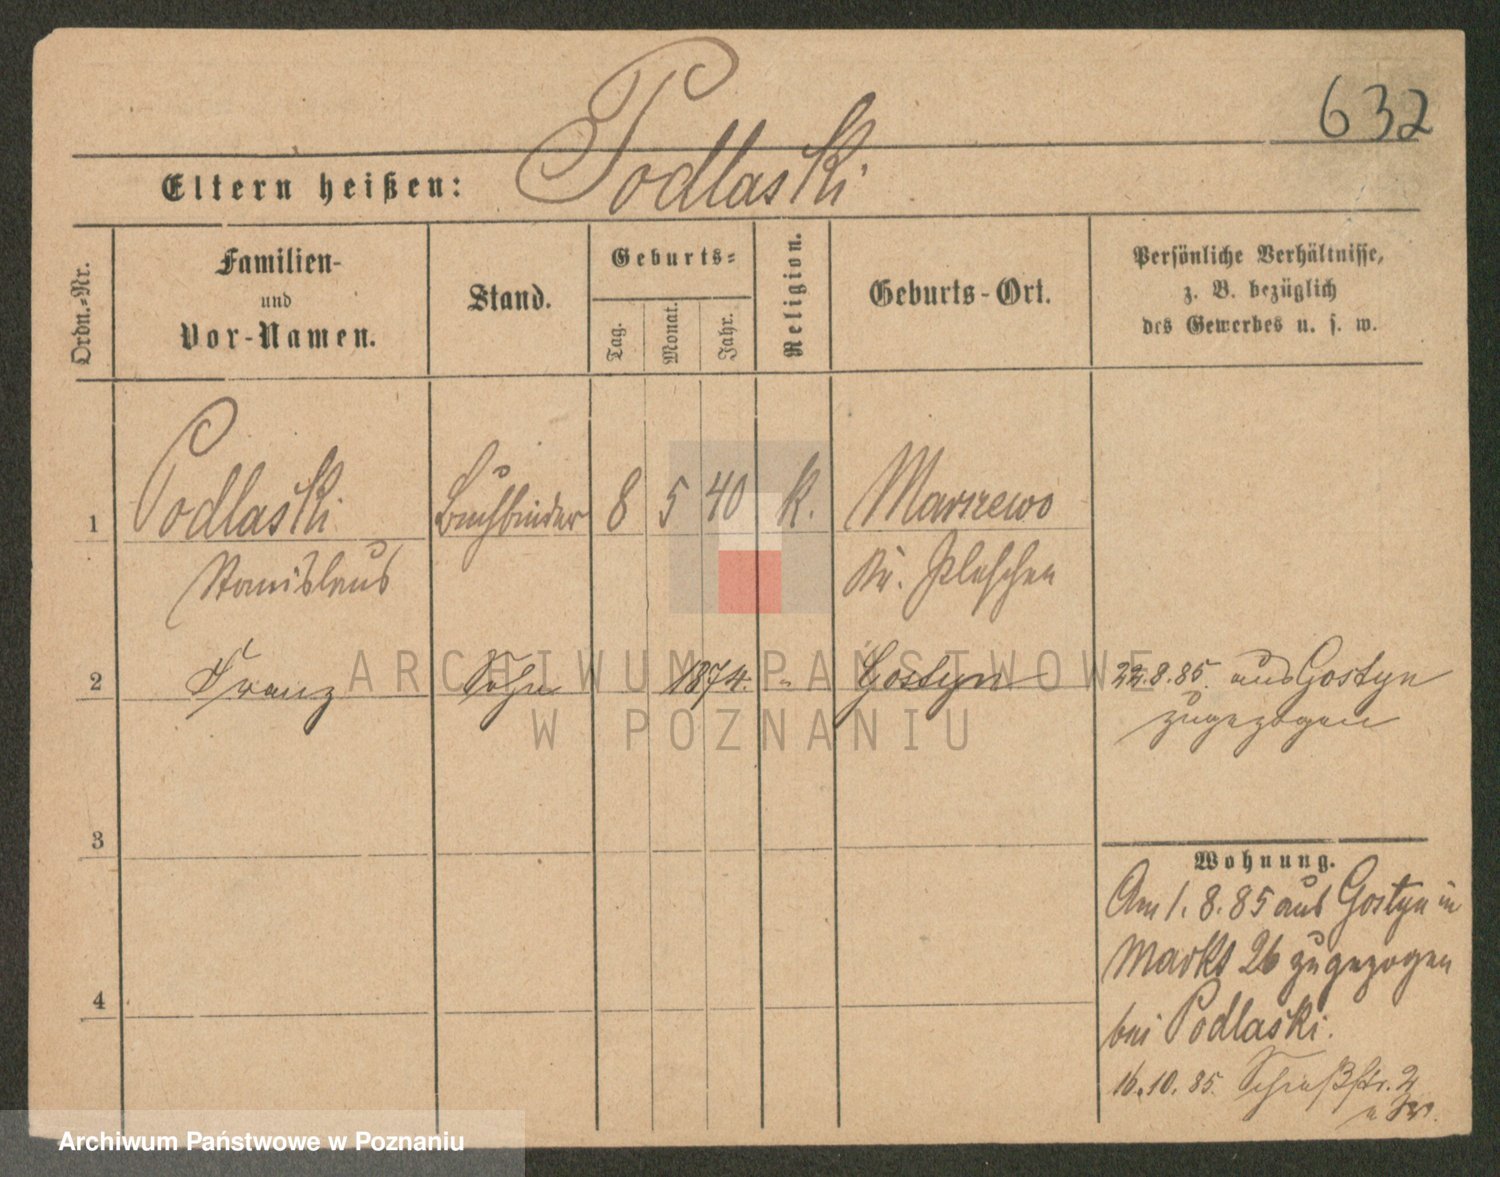 632
Eltern heißen: Podlaski
Ordn.-Nr.
Familien-
und
Vor-Namen.
Stand.
Geburts-
Tag.
Monat.
Jahr.
Religion.
Geburts-Ort.
Persönliche Verhältnisse,
z. B. bezüglich
des Gewerbes u. s. w.
1 Podlaski Buchbinder 8 5 40 k. Marszewo
Stanislaus Kr. Pleschen
2 Franz Sohn 1874. " Gostyn 22.8.85. aus Gostyn
zugezogen
3
Wohnung.
Am 1. 8. 85 aus Gostyn in
Markt 26 zugezogen
4
bei Podlaski.
16.10.85. Schießstr. 2
ARCHIWUM PAŃSTWOWE
W POZNANIU
Archiwum Państwowe w Poznaniu